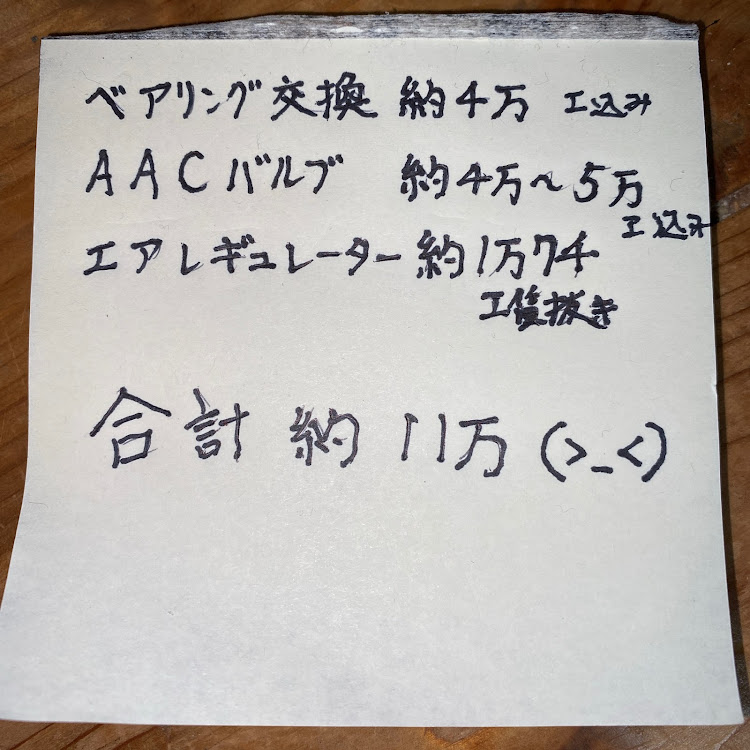 ベアリング交換 約4万 工込み
AACバルブ 約4万〜5万
工込み
エアレギュレーター約1万7千
工賃抜き
合計 約11万(>_<)